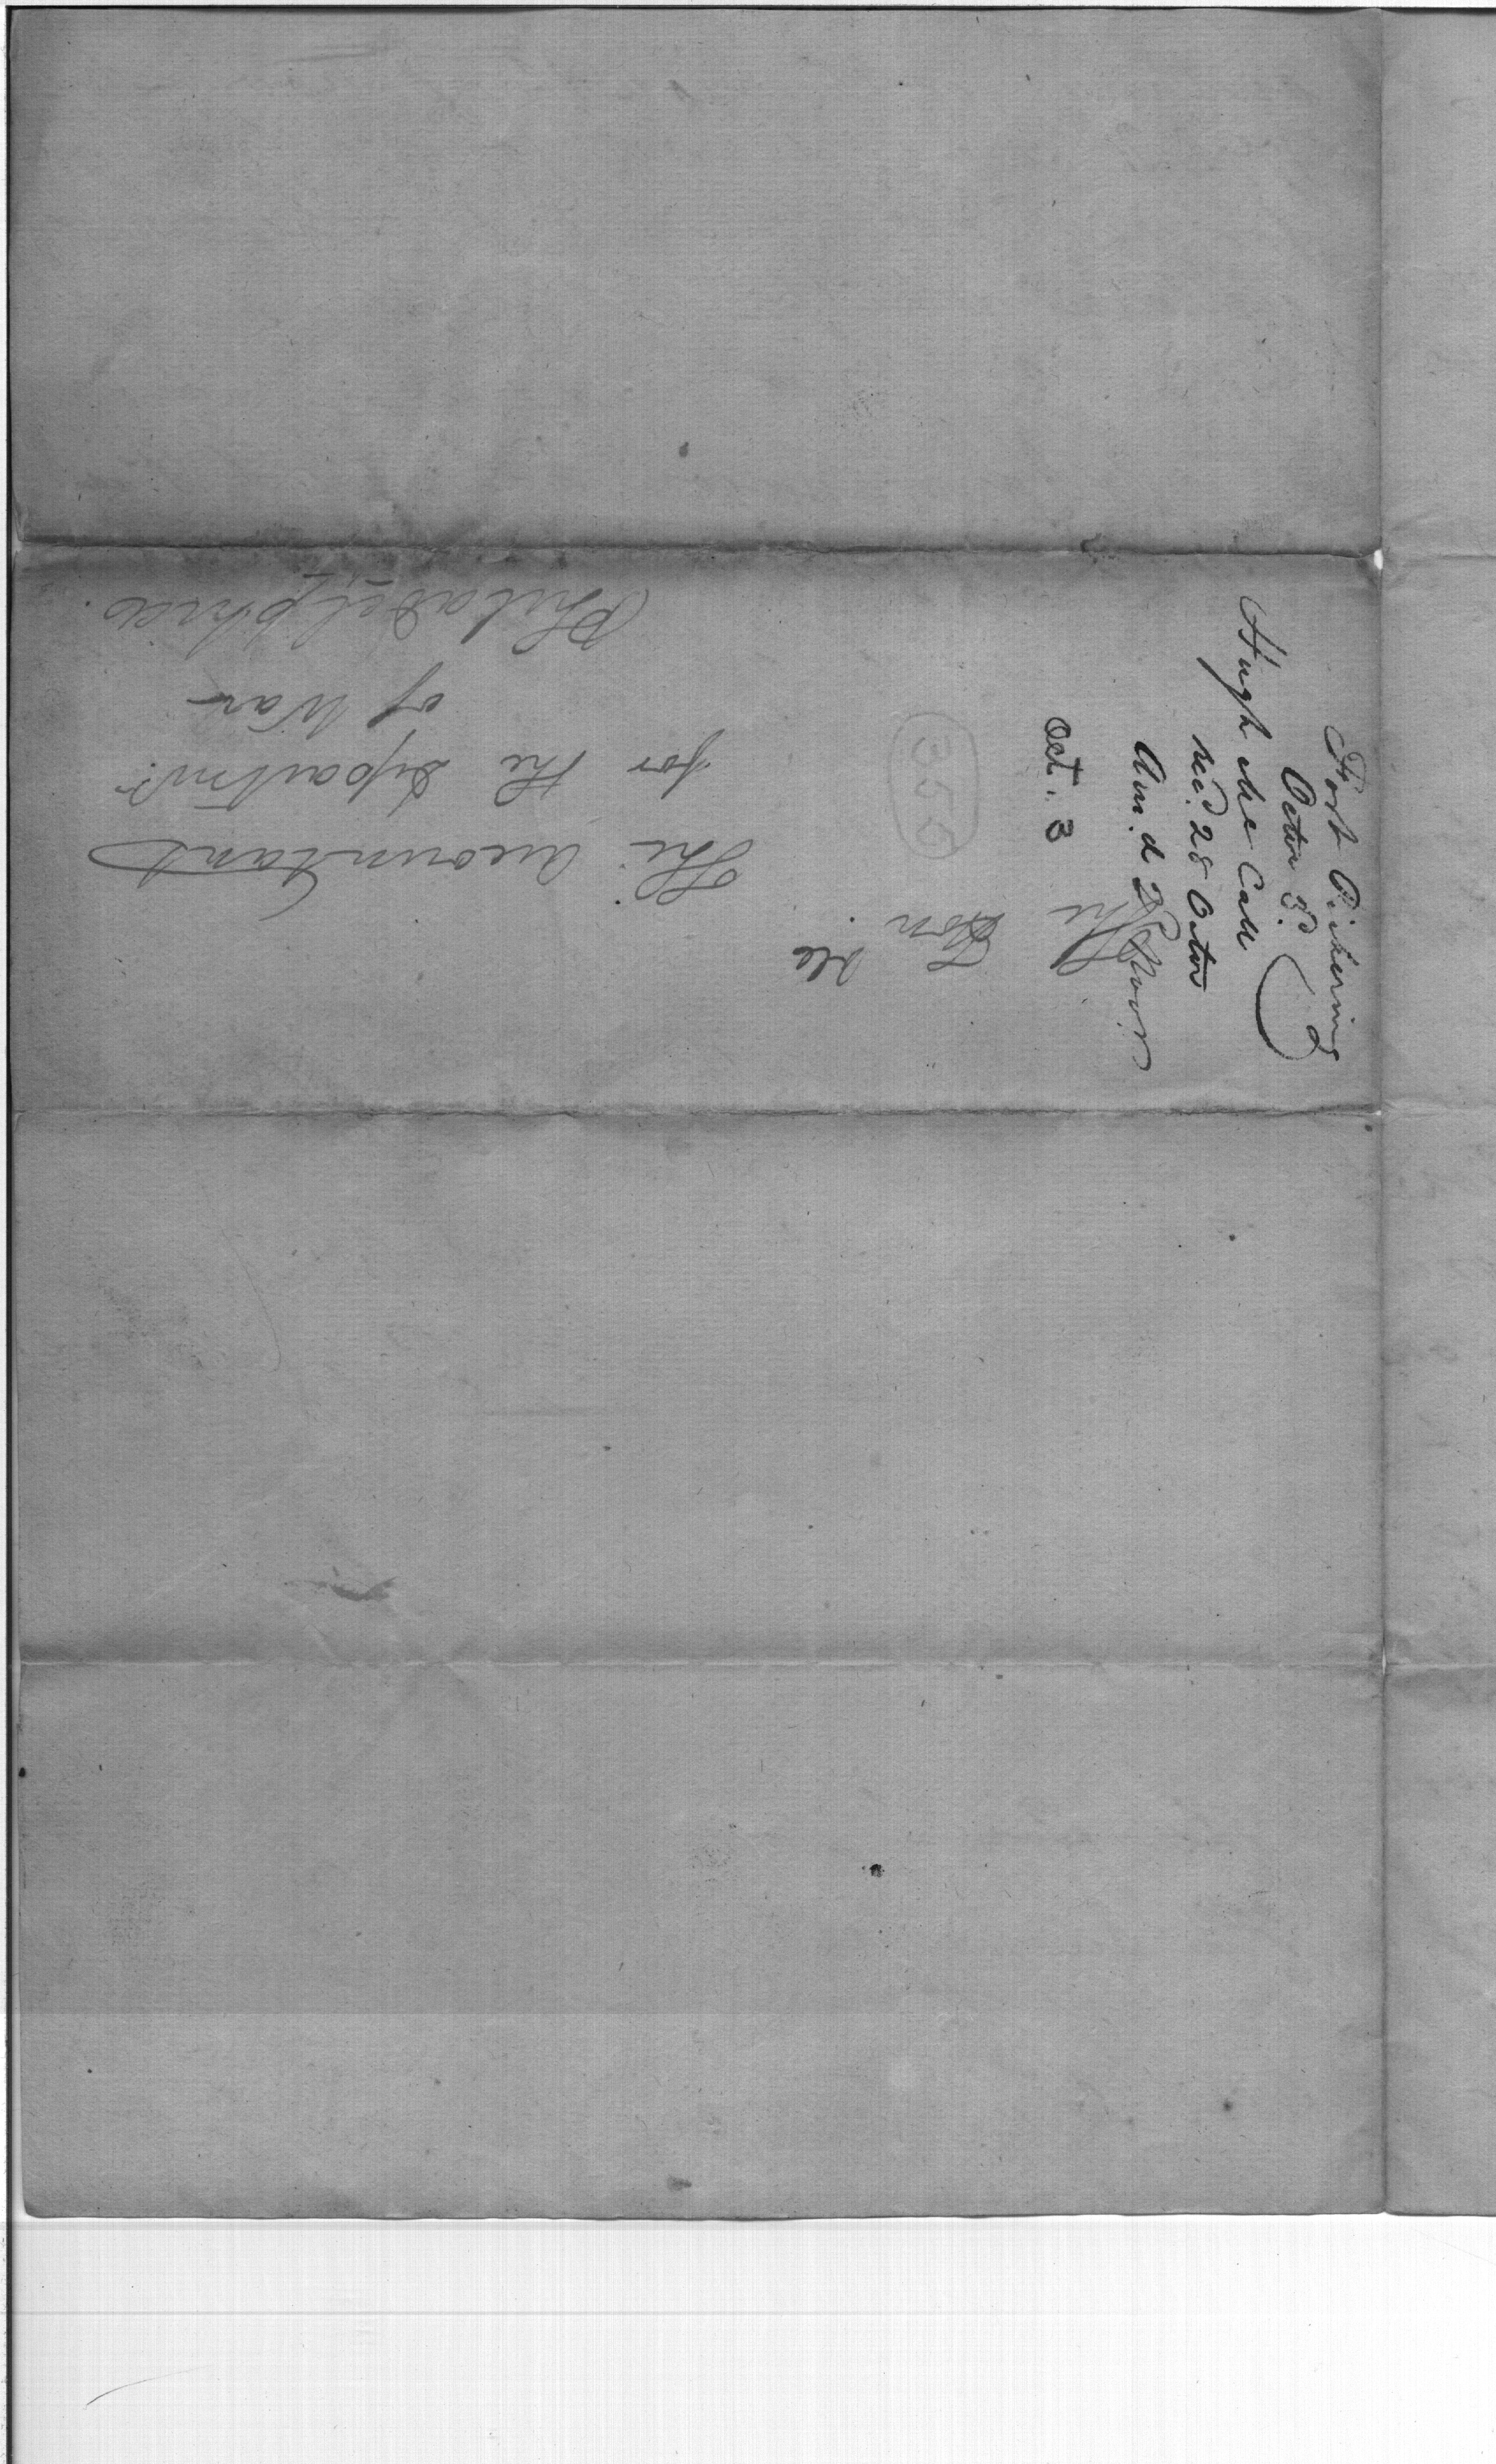 Fort Pickering
Octor 3d.
Hugh Mc Call
recd. 28 Octor
Ans. d 28 Novr
Oct. 3
350
The
Hon ble
The Accountant
for the Departmt.
of War
Philadelphia.